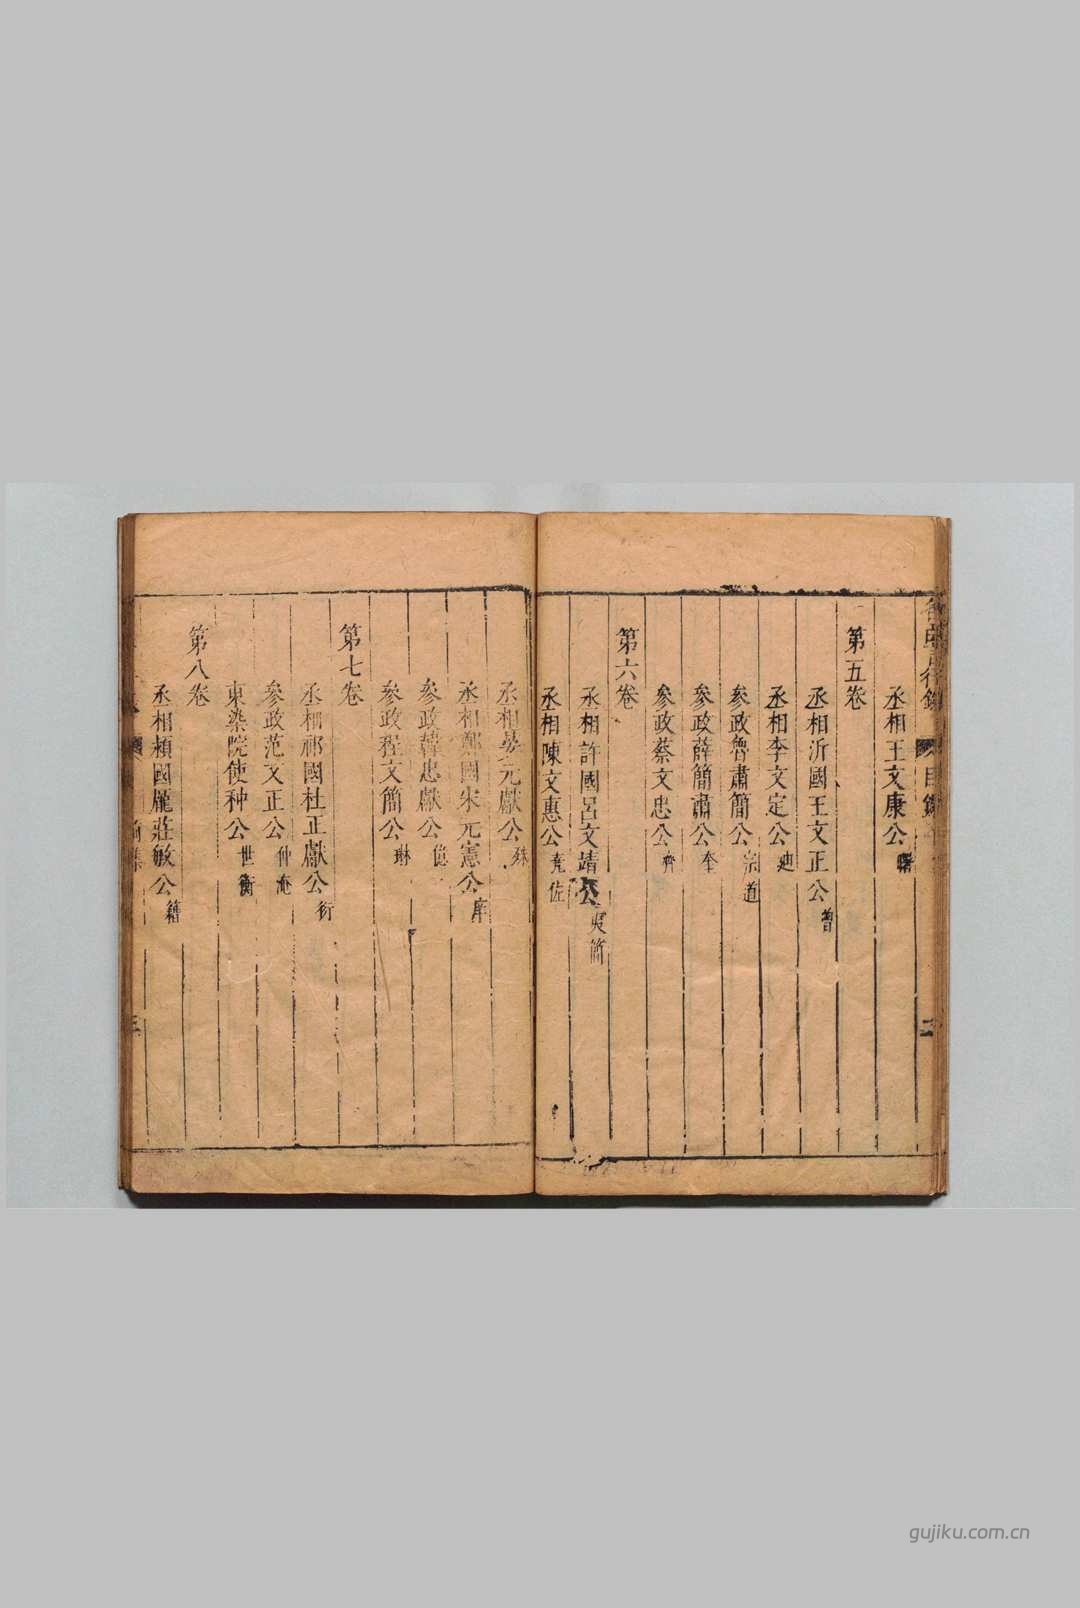 丞相王文康公曙
第五卷
丞相沂國王文正公曾
丞相李文定公迪
參政魯肅簡公宗道
參政薛簡肅公奎
參政蔡文忠公齊
第六卷
丞相許國呂文靖公夷簡
丞相陳文惠公堯佐
丞相晏元獻公殊
丞相鄭國宋元憲公庠
參政韓忠獻公億
參政程文簡公琳
第七卷
丞相祁國杜正獻公衍
參政范文正公仲淹
東染院使种公世衡
第八卷
丞相頴國龐莊敏公籍
gujiku.com.cn